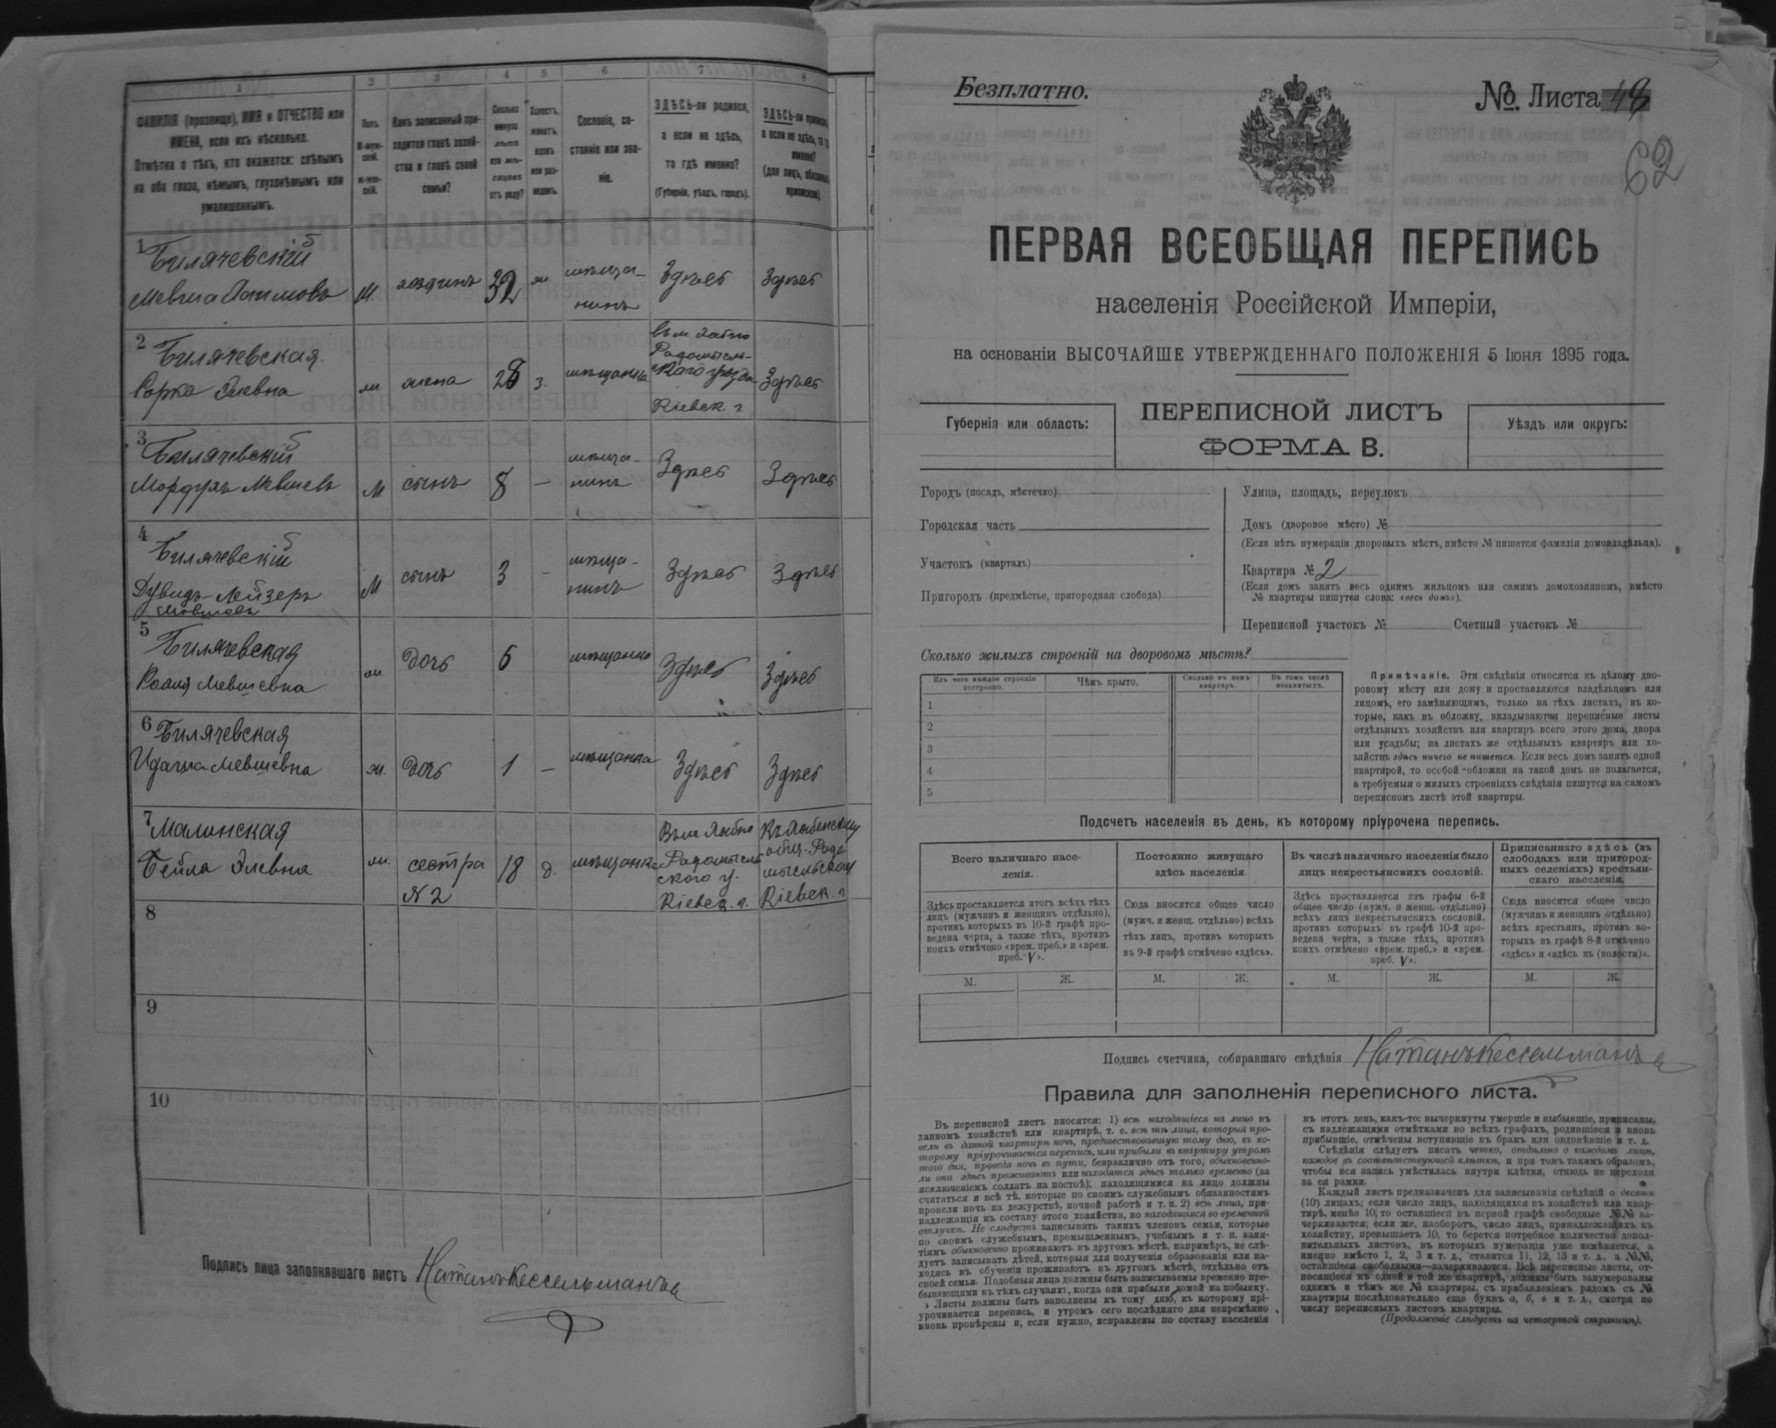 1
2
3
4
5
6
7
8
ФАМИЛІЯ (прозвище), ИМЯ и ОТЧЕСТВО или
ИМЕНА, если ихъ нѣсколько.
Отмѣтка о тѣхъ, кто окажется: слѣпымъ
на оба глаза, нѣмымъ, глухонѣмымъ или
умалишеннымъ.
Полъ.
М-муж-
ской.
ж-жен-
скій.
Какъ записанный при-
ходится главѣ хозяй-
ства и главѣ своей
семьи?
Сколько
минуло
лѣтъ
или мѣ-
сяцевъ
отъ роду?
Холостъ,
женатъ,
вдовъ
или раз-
веденъ.
Сословіе, со-
стояніе или зва-
ніе.
ЗДѢСЬ-ли родился,
а если не здѣсь,
то гдѣ именно?
(Губернія, уѣздъ, городъ).
ЗДѢСЬ-ли приписанъ,
а если не здѣсь, то гдѣ
именно?
(для лицъ, обязанныхъ
припиской).
1
Билячевскій
М.
хозяинъ
32
ж
мѣща-
нинъ
Здѣсь
Здѣсь
2
Билячевская
Сорка Элевна
ж
жена
28
з.
мѣщанка
Радомысль-
Кіевск. г
Здѣсь
3
Билячевскій
Мордухъ Мевшевъ
М
сынъ
8
—
мѣща-
нинъ
Здѣсь
Здѣсь
4
Билячевскій
Дувидъ-Лейзеръ
Мовшевъ
М
сынъ
3
-
мѣща-
нинъ
Здѣсь
Здѣсь
5
Билячевская
Мевшевна
ж.
дочь
6
мѣщанка
Здѣсь
Здѣсь
6
Билячевская
Мевшевна
ж.
дочь
1
—
мѣщанка
Здѣсь
Здѣсь
7
Малинская
Бейла Элевна
ж.
сестра
№ 2
18
д.
мѣщанка
Радомысль
ского у.
Кіевск. г.
общ. Радо
мысльскаго
Кіевск. г.
8
9
10
Подпись лица заполнявшаго листъ Натанъ Кессельманъ
Безплатно.
№. Листа 48
62
ПЕРВАЯ ВСЕОБЩАЯ ПЕРЕПИСЬ
населенія Россійской Имперіи,
на основаніи ВЫСОЧАЙШЕ УТВЕРЖДЕННАГО ПОЛОЖЕНІЯ 5 Іюня 1895 года.
Губернія или область:
ПЕРЕПИСНОЙ ЛИСТЪ
ФОРМА В.
Уѣздъ или округъ:
Городъ (посадъ, мѣстечко)
Городская часть
Участокъ (кварталъ)
Пригородъ (предмѣстье, пригородная слобода)
Улица, площадь, переулокъ
Домъ (дворовое мѣсто) №
(Если нѣтъ нумераціи дворовыхъ мѣстъ, вмѣсто № пишется фамилія домовладѣльца).
Квартира № 2
(Если домъ занятъ весь однимъ жильцомъ или самимъ домохозяиномъ, вмѣсто
№ квартиры пишутся слова: «весь домъ»).
Переписной участокъ № Счетный участокъ №
Сколько жилыхъ строеній на дворовомъ мѣстѣ?
Изъ чего каждое строеніе
построено.
Чѣмъ крыто.
Сколько въ немъ
квартиръ.
Въ томъ числѣ
незанятыхъ.
1
2
3
4
5
Примѣчаніе. Эти свѣдѣнія относятся къ цѣлому дво-
ровому мѣсту или дому и проставляются владѣльцемъ или
лицомъ, его замѣняющимъ, только на тѣхъ листахъ, въ ко-
торые, какъ въ обложку, вкладываются переписные листы
отдѣльныхъ хозяйствъ или квартиръ всего этого дома, двора
или усадьбы; на листахъ же отдѣльныхъ квартиръ или хо-
зяйствъ здѣсь ничего не пишется. Если весь домъ занятъ одной
квартирой, то особой обложки на такой домъ не полагается,
а требуемыя о жилыхъ строеніяхъ свѣдѣнія пишутся на самомъ
переписномъ листѣ этой квартиры.
Подсчетъ населенія въ день, къ которому пріурочена перепись.
Всего наличнаго насе-
ленія.
Постоянно живущаго
здѣсь населенія.
Въ числѣ наличнаго населенія было
лицъ некрестьянскихъ сословій.
Приписаннаго здѣсь (въ
слободахъ или пригород-
ныхъ селеніяхъ) крестьян-
скаго населенія.
Здѣсь проставляется итогъ всѣхъ тѣхъ
лицъ (мужчинъ и женщинъ отдѣльно),
противъ которыхъ въ 10-й графѣ про-
ведена черта, а также тѣхъ, противъ
коихъ отмѣчено «врем. преб.» и «врем.
преб. V».
Сюда вносится общее число
(мужч. и женщ. отдѣльно) всѣхъ
тѣхъ лицъ, противъ которыхъ
въ 9-й графѣ отмѣчено «здѣсь».
Здѣсь проставляется изъ графы 6-й
общее число (мужч. и женщ. отдѣльно)
всѣхъ лицъ некрестьянскихъ сословій,
противъ которыхъ въ графѣ 10-й про-
ведена черта, а также тѣхъ, противъ
коихъ отмѣчено «врем. преб.» и «врем.
преб. V».
Сюда вносится общее число
(мужчинъ и женщинъ отдѣльно)
всѣхъ крестьянъ, противъ ко-
торыхъ въ графѣ 8-й отмѣчено
«здѣсь» и «здѣсь въ (волости)».
М. Ж. М. Ж. М. Ж. М. Ж.
Подпись счетчика, собиравшаго свѣдѣнія Натанъ Кессельманъ
Правила для заполненія переписного листа.
Въ переписной листъ вносятся: 1) всѣ находящіеся на лицо въ
данномъ хозяйствѣ или квартирѣ, т. е. всѣ тѣ лица, которыя про-
вели въ данной квартирѣ ночь, предшествовавшую тому дню, къ ко-
торому пріурочивается перепись, или прибыли въ квартиру утромъ
того дня, проведя ночь въ пути, безразлично отъ того, обыкновенно-
ли они здѣсь проживаютъ или находятся здѣсь только временно (за
исключеніемъ солдатъ на постоѣ); находящимися на лицо должны
считаться и всѣ тѣ, которые по своимъ служебнымъ обязанностямъ
провели ночь на дежурствѣ, ночной работѣ и т. п. 2) всѣ лица, при-
надлежащія къ составу этого хозяйства, но находящіяся во временной
отлучкѣ. Не слѣдуетъ записывать такихъ членовъ семьи, которые
по своимъ служебнымъ, промышленнымъ, учебнымъ и т. п. заня-
тіямъ обыкновенно проживаютъ въ другомъ мѣстѣ, напримѣръ, не слѣ-
дуетъ записывать дѣтей, которыя для полученія образованія или на-
ходясь въ обученіи проживаютъ въ другомъ мѣстѣ, отдѣльно отъ
своей семьи. Подобныя лица должны быть записываемы временно пре-
бывающими въ тѣхъ случаяхъ, когда они прибыли домой на побывку.
Листы должны быть заполнены къ тому дню, къ которому прі-
урочивается перепись, и утромъ сего послѣдняго дня непремѣнно
вновь провѣрены и, если нужно, исправлены по составу населенія
въ этотъ день, какъ-то: вычеркнуты умершіе и выбывшіе, приписаны,
съ надлежащими отмѣтками во всѣхъ графахъ, родившіеся и вновь
прибывшіе, отмѣчены вступившіе въ бракъ или овдовѣвшіе и т. д.
Свѣдѣнія слѣдуетъ писать четко, отдѣльно о каждомъ лицѣ,
каждое въ соотвѣтствующей клѣткѣ, и при томъ такимъ образомъ,
чтобы вся запись умѣстилась внутри клѣтки, отнюдь не переходя
за ея рамки.
Каждый листъ предназначенъ для записыванія свѣдѣній о десяти
(10) лицахъ; если число лицъ, находящихся въ хозяйствѣ или квар-
тирѣ, менѣе 10, то оставшіеся въ первой графѣ свободные №№ за-
черкиваются; если же, наоборотъ, число лицъ, принадлежащихъ къ
хозяйству, превышаетъ 10, то берется потребное количество допол-
нительныхъ листовъ, въ которыхъ нумерація уже измѣняется, а
именно вмѣсто 1, 2, 3 и т. д., ставится 11, 12, 13 и т. д., а №№,
оставшіеся свободными—зачеркиваются. Всѣ переписные листы, от-
носящіеся къ одной и той же квартирѣ, должны быть занумерованы
однимъ и тѣмъ же № квартиры, съ прибавленіемъ рядомъ съ №
квартиры послѣдовательно еще буквъ а, б, в и т. д., смотря по
числу переписныхъ листовъ квартиры.
(Продолженіе слѣдуетъ на четвертой страницѣ).